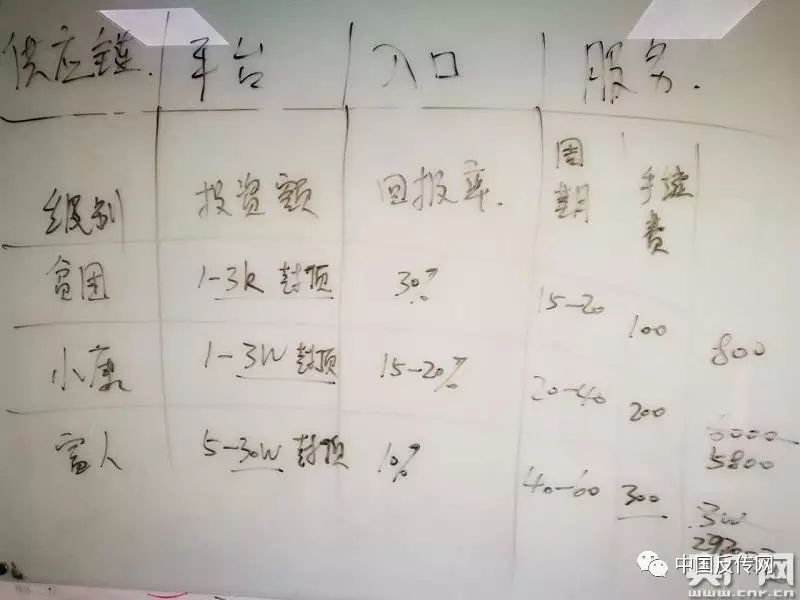 供应链. 平台 入口 服务.
级别 投资额 回报率. 周期 手续费
贫困 1-3k 封顶 30% 15-20 100 800
小康 1-3W 封顶 15-20% 20-40 200
5800
富人 5-30W 封顶 10% 40-60 300
3W
中国反传网
央广网
www.cnr.cn